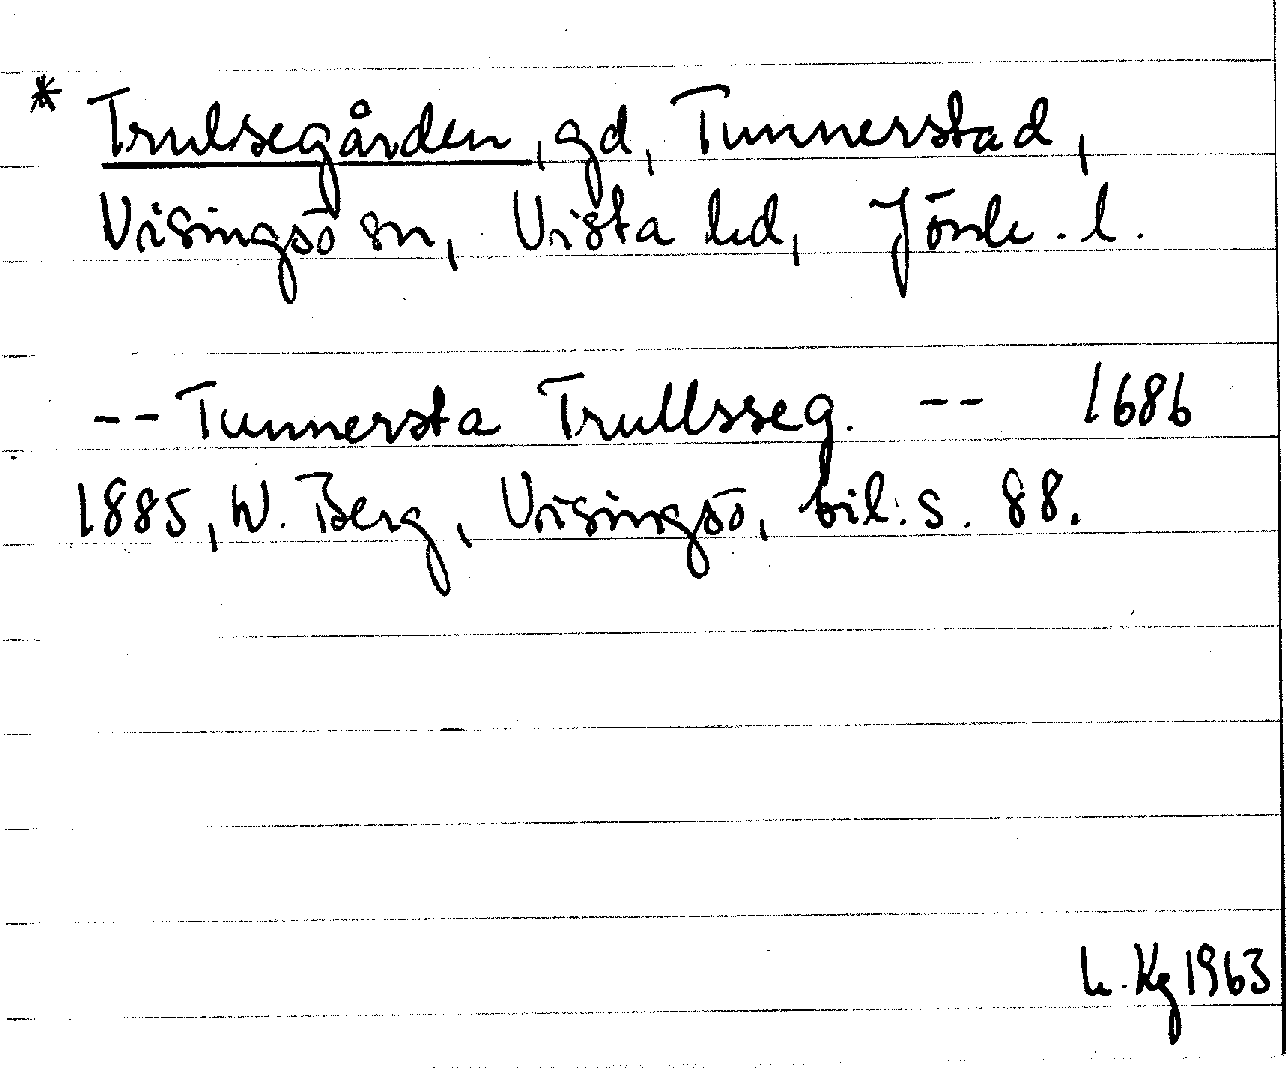 * Trulsegården, gd, Tunnerstad,
Visingsö sn, Vista hd, Jönk. l.
-- Tunnersta Trullsseg. -- 1686
1885, W. Berg, Visingsö, bil. s. 88.
Kg 1963